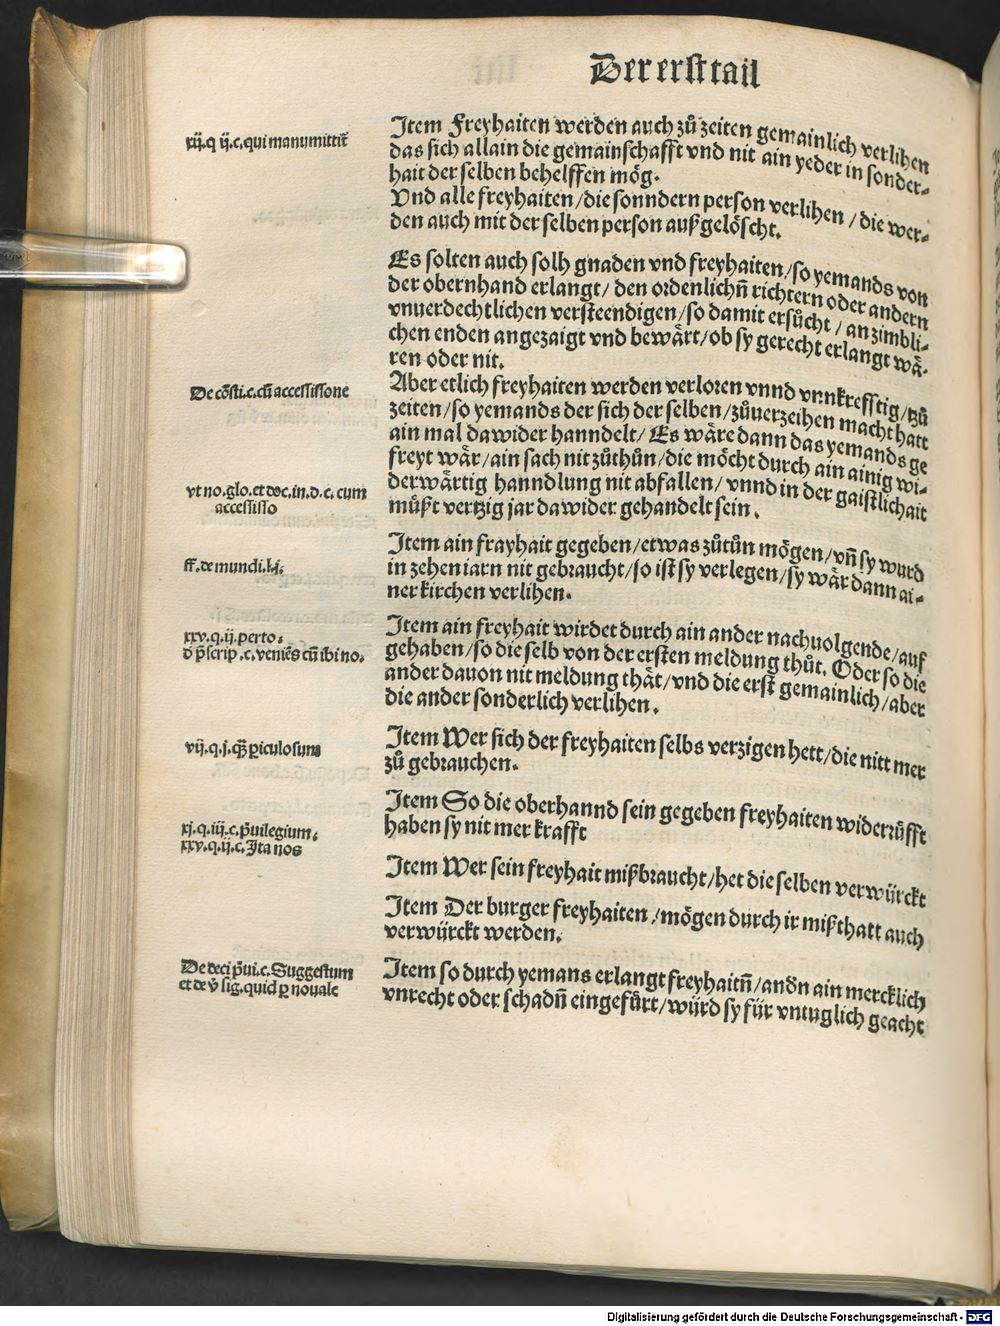 Der erst tail
xij.q ij.c.qui manumittit̃
Item Freyhaiten werden auch zů zeiten gemainlich verlihen
das sich allain die gemainschafft vnd nit ain yeder in sonder⸗
hait der selben behelffen mög.
Vnd alle freyhaiten/die sonndern person verlihen/die wer⸗
den auch mit der selben person außgelöscht.
Es solten auch solh gnaden vnd freyhaiten/so yemands von
der obernhand erlangt/den ordenlichñ richtern oder andern
vnuerdechtlichen versteendigen/so damit ersůcht/an zimbli⸗
chen enden angezaigt vnd bewärt/ob sy gerecht erlangt wä⸗
ren oder nit.
De cõsti.c.cũ accessissone
Aber etlich freyhaiten werden verloren vnnd vnnkrefftig/tzů
zeiten/so yemands der sich der selben/zůuerzeihen macht hatt
ain mal dawider hanndelt/Es wäre dann das yemands ge
freyt wär/ain sach nit zůthůn/die möcht durch ain ainig wi⸗
derwärtig hanndlung nit abfallen/vnnd in der gaistlichait
müßt vertzig jar dawider gehandelt sein.
vt no.glo.et doc.in.d.c.cum
accessisso
ff.de mundi.l.j.
Item ain frayhait gegeben/etwas zůtůn mögen/vñ sy wurd
in zehen iarn nit gebraucht/so ist sy verlegen/sy wär dann ai⸗
ner kirchen verlihen.
xxv.q.ij.perto.
d p̃scrip.c.veniẽs cũ ibi no.
Item ain freyhait wirdet durch ain ander nachuolgende/auf
gehaben/so die selb von der ersten meldung thůt. Oder so die
ander dauon nit meldung thät/vnd die erst gemainlich/aber
die ander sonderlich verlihen.
vij.q.j.q̃ꝫ ꝑiculosum
Item Wer sich der freyhaiten selbs verzigen hett/die nitt mer
zů gebrauchen.
xj.q.iij.c.p̃uilegium.
xxv.q.ij.c.Ita nos
Item So die oberhannd sein gegeben freyhaiten widerrůfft
haben sy nit mer krafft
Item Wer sein freyhait mißbraucht/het die selben verwürckt
Item Der burger freyhaiten/mögen durch ir mißthatt auch
verwürckt werden.
De deci p̃ui.c.Suggestum
et de ṽ sig.quid ꝑ nouale
Item so durch yemans erlangt freyhaitñ/andñ ain mercklich
vnrecht oder schadñ eingefůrt/würd sy für vntuglich geacht
Digitalisierung gefördert durch die Deutsche Forschungsgemeinschaft - DFG